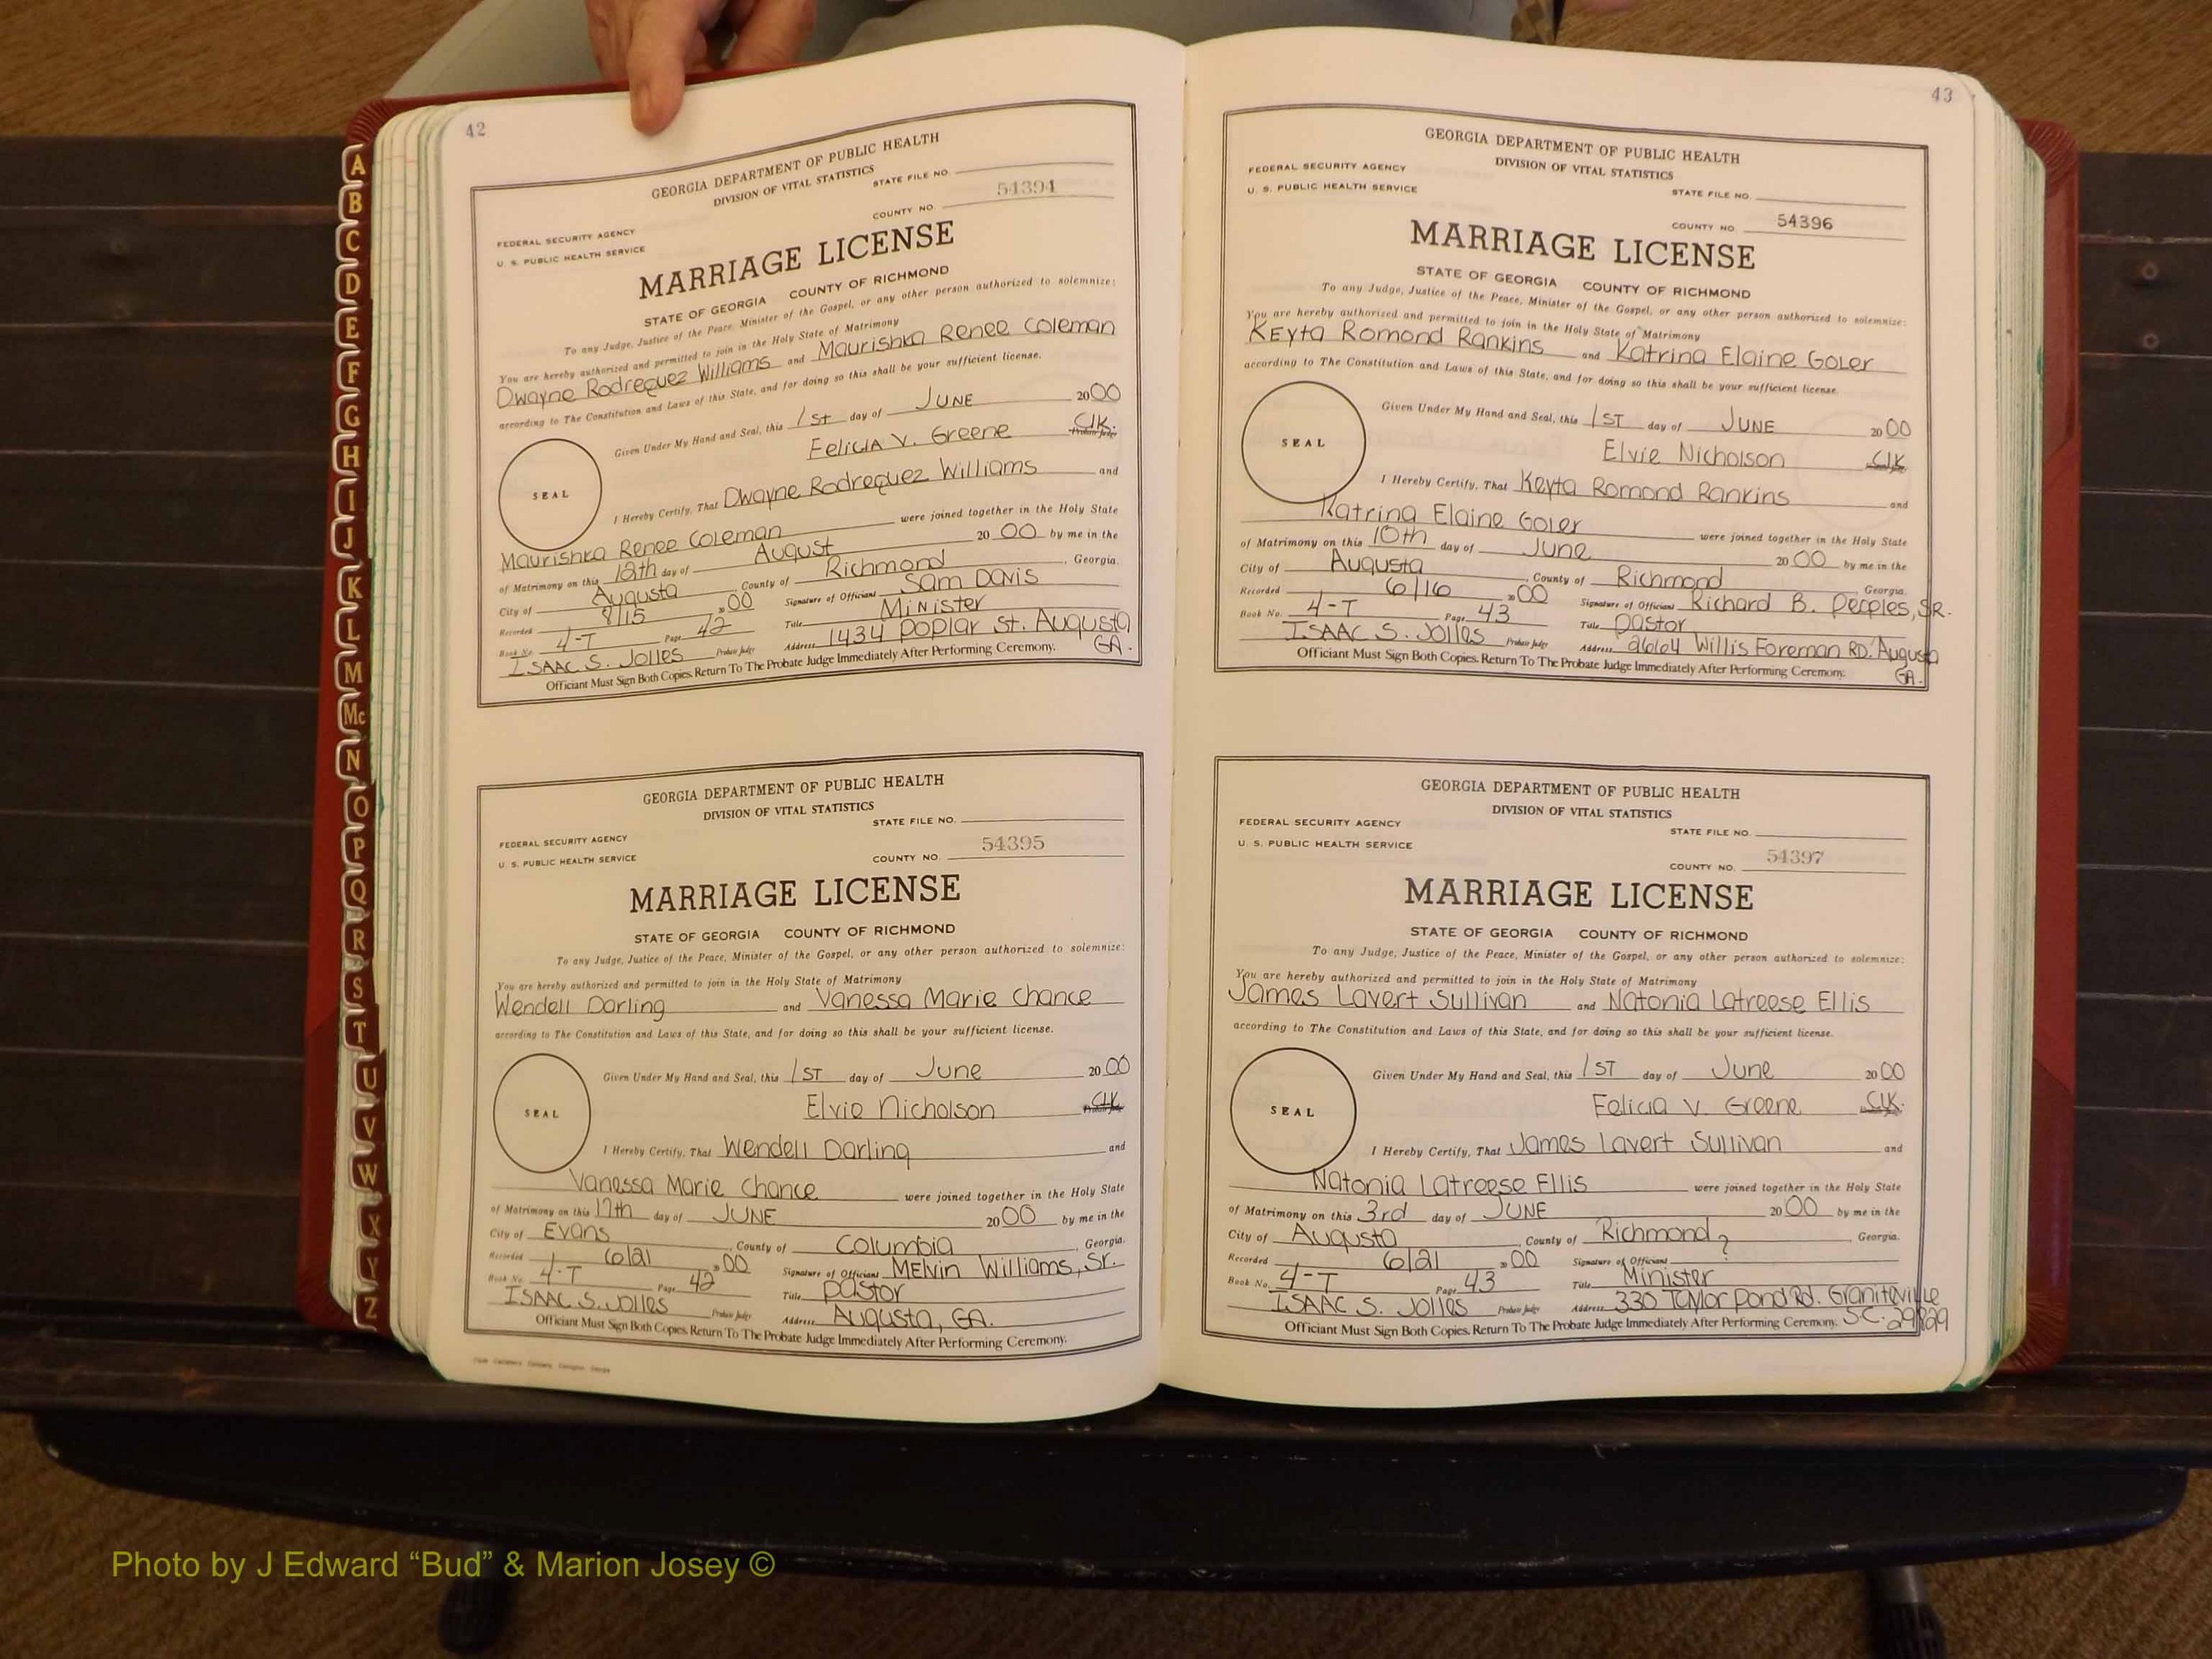 42
GEORGIA DEPARTMENT OF PUBLIC HEALTH
DIVISION OF VITAL STATISTICS
STATE FILE NO.
54394
COUNTY NO.
FEDERAL SECURITY AGENCY
U. S. PUBLIC HEALTH SERVICE
MARRIAGE LICENSE
STATE OF GEORGIA COUNTY OF RICHMOND
To any Judge, Justice of the Peace, Minister of the Gospel, or any other person authorized to solemnize:
You are hereby authorized and permitted to join in the Holy State of Matrimony
Dwayne Rodrequez Williams and Maurishka Renee Coleman
according to The Constitution and Laws of this State, and for doing so this shall be your sufficient license.
Given Under My Hand and Seal, this 1st day of JUNE 2000
Felicia V. Greene Clk.
SEAL
I Hereby Certify, That Dwayne Rodrequez Williams and
Maurishka Renee Coleman were joined together in the Holy State
of Matrimony on this 12th day of August 2000 by me in the
City of Augusta County of Richmond, Georgia.
Recorded 8/15 00 Signature of Officiant Sam Davis
Book No. 4-T Page 42 Title Minister
ISAAC S. Jolles Probate Judge Address 1434 Poplar St. Augusta GA.
Officiant Must Sign Both Copies. Return To The Probate Judge Immediately After Performing Ceremony.
GEORGIA DEPARTMENT OF PUBLIC HEALTH
DIVISION OF VITAL STATISTICS
STATE FILE NO.
FEDERAL SECURITY AGENCY
U. S. PUBLIC HEALTH SERVICE
COUNTY NO. 54395
MARRIAGE LICENSE
STATE OF GEORGIA COUNTY OF RICHMOND
To any Judge, Justice of the Peace, Minister of the Gospel, or any other person authorized to solemnize:
You are hereby authorized and permitted to join in the Holy State of Matrimony
Wendell Darling and Vanessa Marie Chance
according to The Constitution and Laws of this State, and for doing so this shall be your sufficient license.
Given Under My Hand and Seal, this 1ST day of June 2000
Elvie Nicholson Clk
SEAL
I Hereby Certify, That Wendell Darling and
Vanessa Marie Chance were joined together in the Holy State
of Matrimony on this 17th day of JUNE 2000 by me in the
City of Evans, County of Columbia, Georgia.
Recorded 6/21 00 Signature of Officiant Melvin Williams, Sr.
Book No. 4-T Page 42 Title Pastor
ISAAC S. Jolles Probate Judge Address Augusta, GA.
Officiant Must Sign Both Copies. Return To The Probate Judge Immediately After Performing Ceremony.
43
GEORGIA DEPARTMENT OF PUBLIC HEALTH
DIVISION OF VITAL STATISTICS
FEDERAL SECURITY AGENCY
U. S. PUBLIC HEALTH SERVICE
STATE FILE NO.
COUNTY NO. 54396
MARRIAGE LICENSE
STATE OF GEORGIA COUNTY OF RICHMOND
To any Judge, Justice of the Peace, Minister of the Gospel, or any other person authorized to solemnize:
You are hereby authorized and permitted to join in the Holy State of Matrimony
Keyta Romond Rankins and Katrina Elaine Goler
according to The Constitution and Laws of this State, and for doing so this shall be your sufficient license.
Given Under My Hand and Seal, this 1ST day of JUNE 2000
Elvie Nicholson Clk
SEAL
I Hereby Certify, That Keyta Romond Rankins and
Katrina Elaine Goler were joined together in the Holy State
of Matrimony on this 10th day of June 2000 by me in the
City of Augusta, County of Richmond Georgia.
Recorded 6/16 00 Signature of Officiant Richard B. Peoples, SR.
Book No. 4-T Page 43 Title Pastor
ISAAC S. Jolles Probate Judge Address 2664 Willis Foreman RD. Augusta GA.
Officiant Must Sign Both Copies. Return To The Probate Judge Immediately After Performing Ceremony.
GEORGIA DEPARTMENT OF PUBLIC HEALTH
DIVISION OF VITAL STATISTICS
FEDERAL SECURITY AGENCY
STATE FILE NO.
U. S. PUBLIC HEALTH SERVICE
COUNTY NO. 54397
MARRIAGE LICENSE
STATE OF GEORGIA COUNTY OF RICHMOND
To any Judge, Justice of the Peace, Minister of the Gospel, or any other person authorized to solemnize:
You are hereby authorized and permitted to join in the Holy State of Matrimony
James Lavert Sullivan and Natonia Latreese Ellis
according to The Constitution and Laws of this State, and for doing so this shall be your sufficient license.
Given Under My Hand and Seal, this 1ST day of June 2000
Felicia V. Greene Clk.
SEAL
I Hereby Certify, That James Lavert Sullivan and
Natonia Latreese Ellis were joined together in the Holy State
of Matrimony on this 3rd day of JUNE 2000 by me in the
City of Augusta, County of Richmond, Georgia.
Recorded 6/21 00 Signature of Officiant ?
Book No. 4-T Page 43 Title Minister
ISAAC S. Jolles Probate Judge Address 330 Taylor Pond Rd. Graniteville
Officiant Must Sign Both Copies. Return To The Probate Judge Immediately After Performing Ceremony. S.C. 29829
A
B
C
D
E
F
G
H
I
J
K
L
M
Mc
N
O
P
Q
R
S
T
U
V
W
X
Y
Z
Photo by J Edward “Bud” & Marion Josey ©